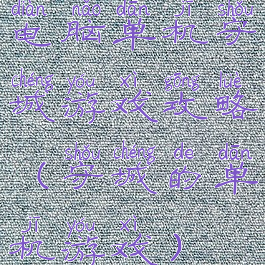 diàn nǎo dān jī shǒu
电脑单机守
chéng yóu xì gōng lüè
城游戏攻略
shǒu chéng de dān
（守城的单
jī yóu xì
机游戏）